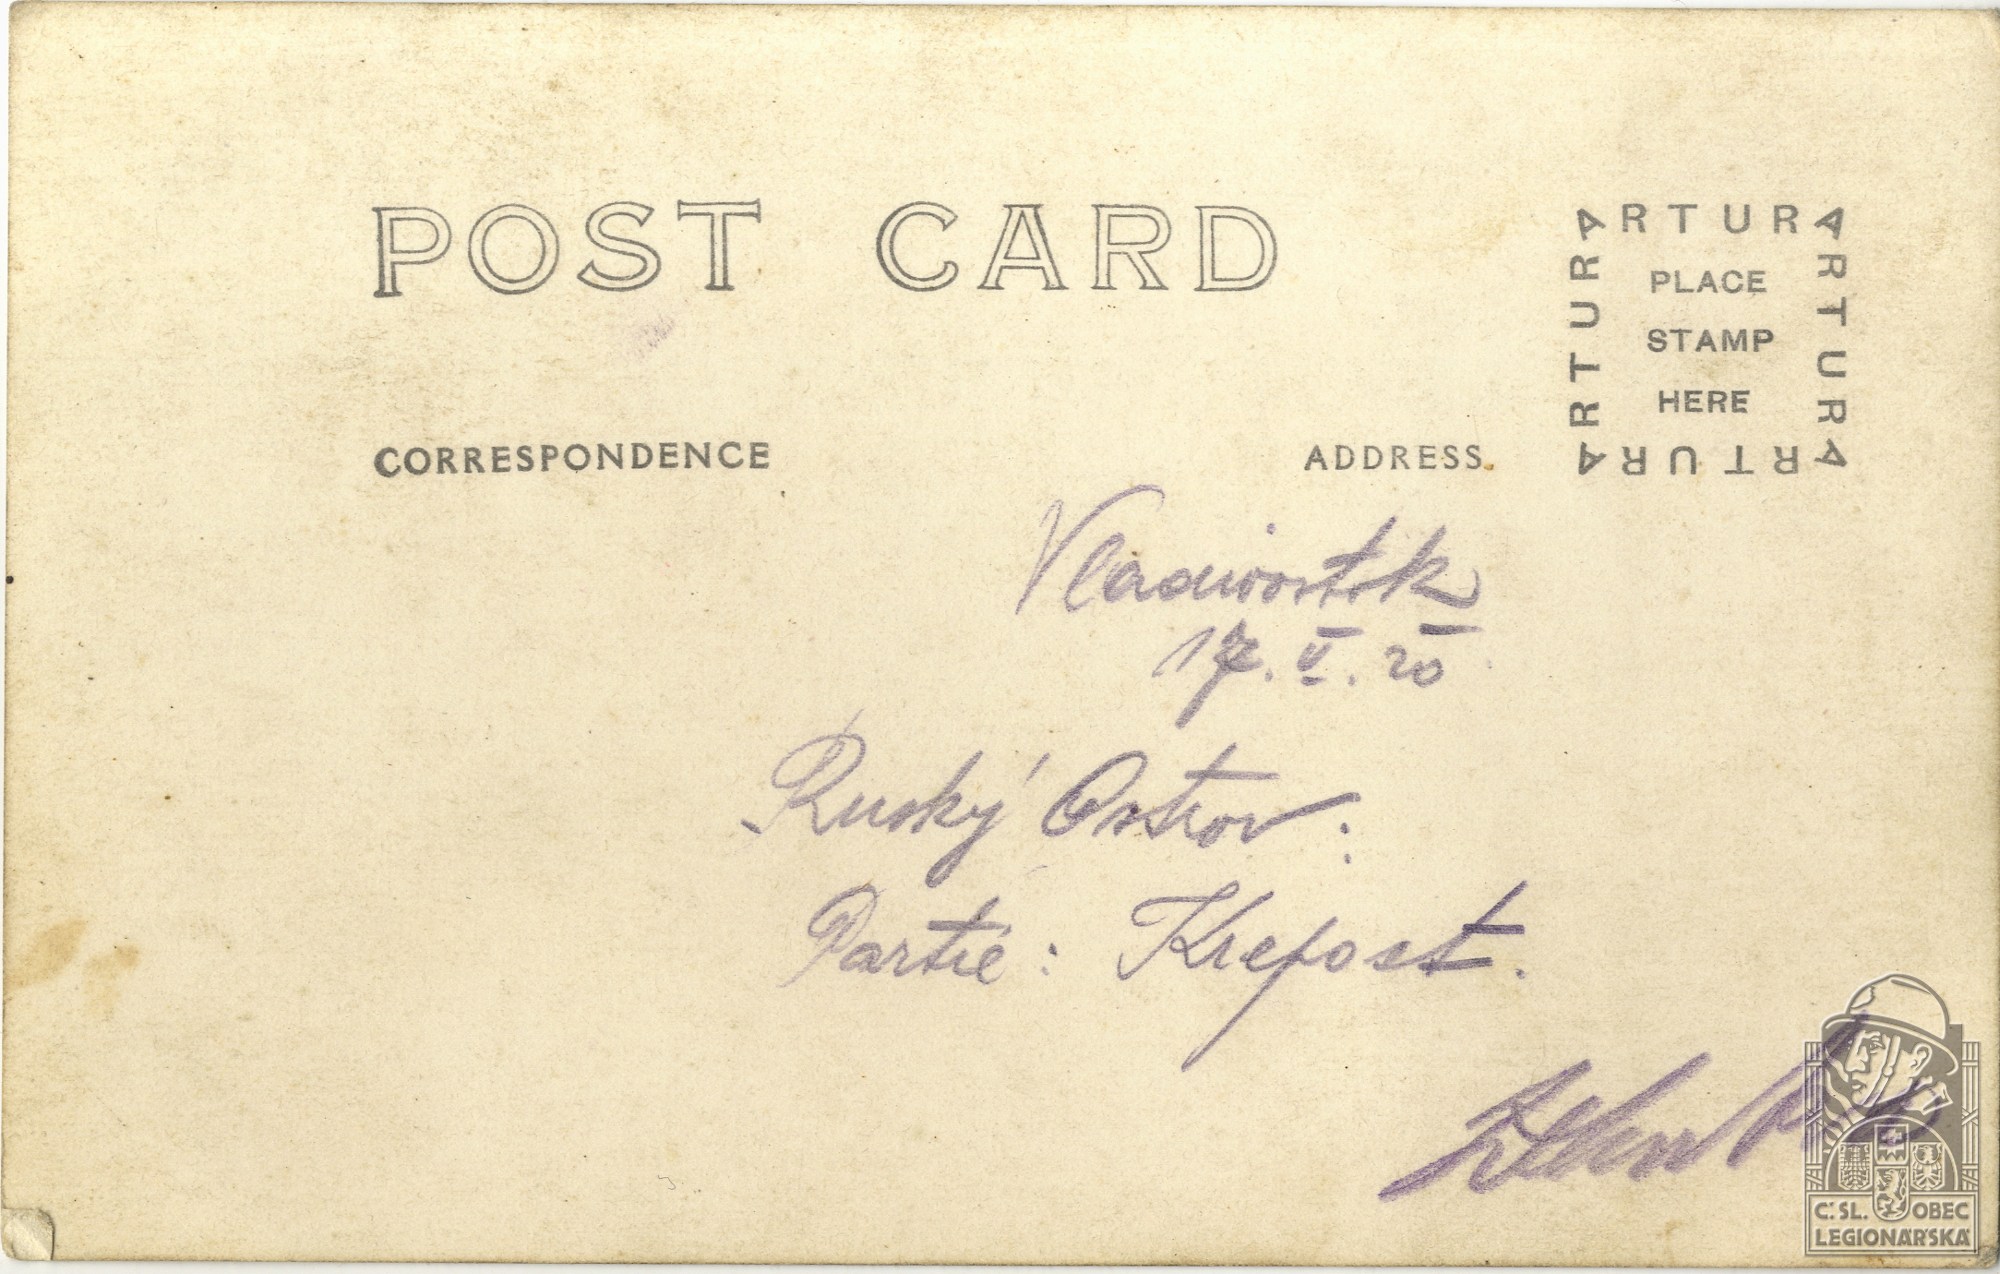 POST CARD
ARTURA
ARTURA
ARTURA
ARTURA
PLACE
STAMP
HERE
CORRESPONDENCE
ADDRESS.
Vladivostok
17. V. 20
Ruský Ostrov:
Partie: Krepost.
Č.SL. OBEC
LEGIONÁŘSKÁ